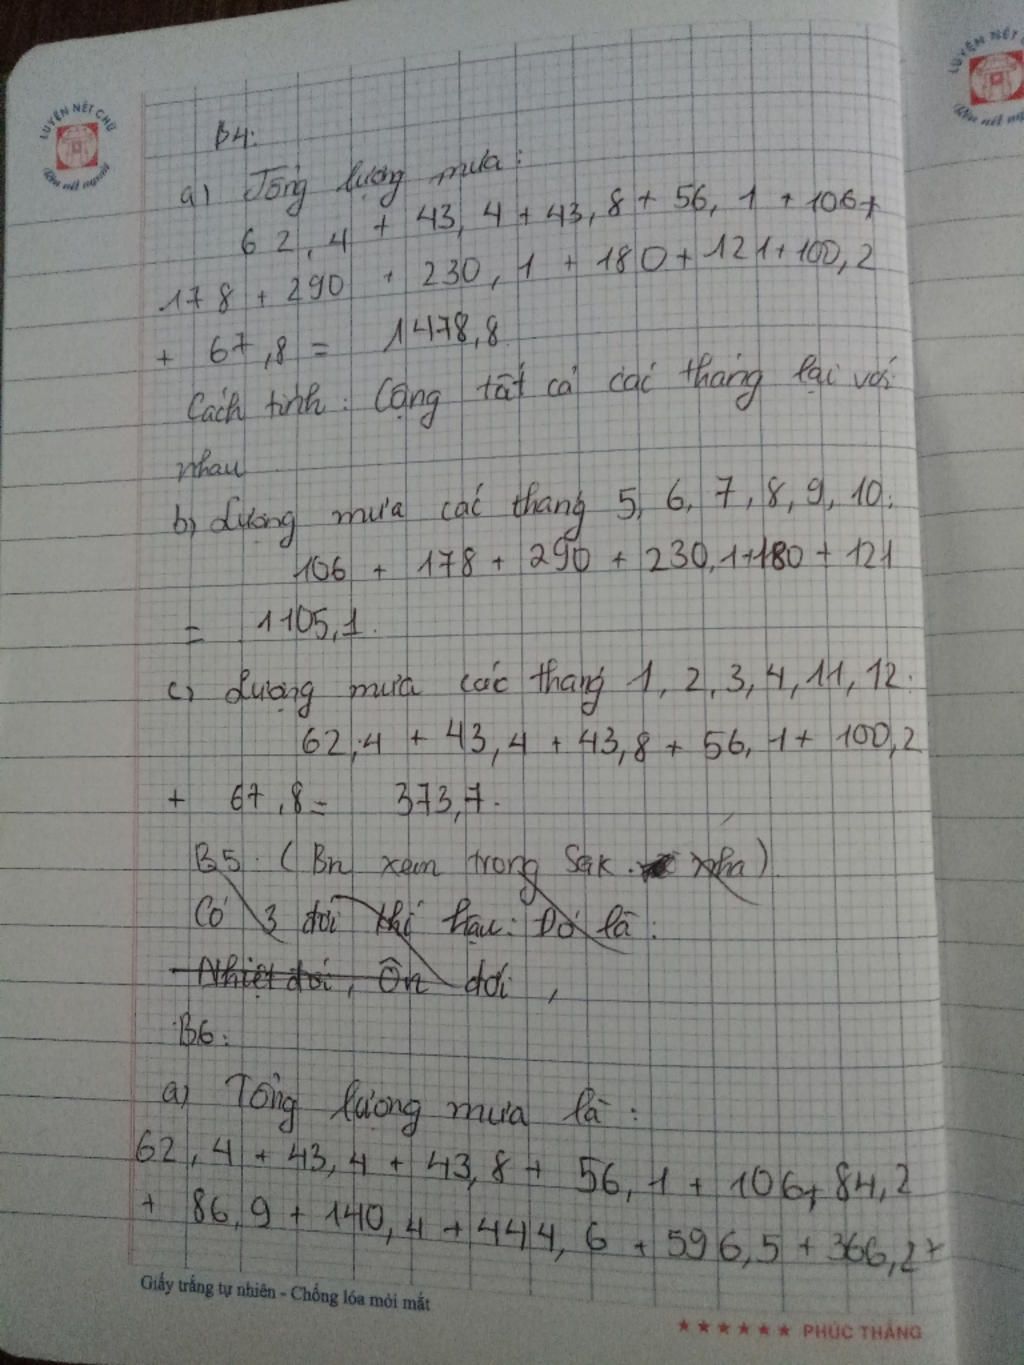 LUYỆN NÉT CHỮ
Rèn nết người
LUYỆN NÉT C
Rèn nết ngư
B4:
a) Tổng lượng mưa:
62,4 + 43,4 + 43,8 + 56,1 + 106 +
178 + 290 + 230,1 + 180 + 121 + 100,2
+ 67,8 = 1478,8
Cách tính: Cộng tất cả các tháng lại với
nhau
b) Lượng mưa các tháng 5, 6, 7, 8, 9, 10:
106 + 178 + 290 + 230,1 + 180 + 121
= 1105,1.
c) Lượng mưa các tháng 1, 2, 3, 4, 11, 12:
62,4 + 43,4 + 43,8 + 56,1 + 100,2
+ 67,8 = 373,7.
B5. (Bn xem trong Sgk. nha)
Có 3 đới khí hậu: Đó là:
Nhiệt đới, Ôn đới,
B6:
a) Tổng lượng mưa là:
62,4 + 43,4 + 43,8 + 56,1 + 106 + 84,2
+ 86,9 + 140,4 + 444,6 + 596,5 + 366,2 +
Giấy trắng tự nhiên - Chống lóa mỏi mắt
★★★★★★ PHÚC THẮNG